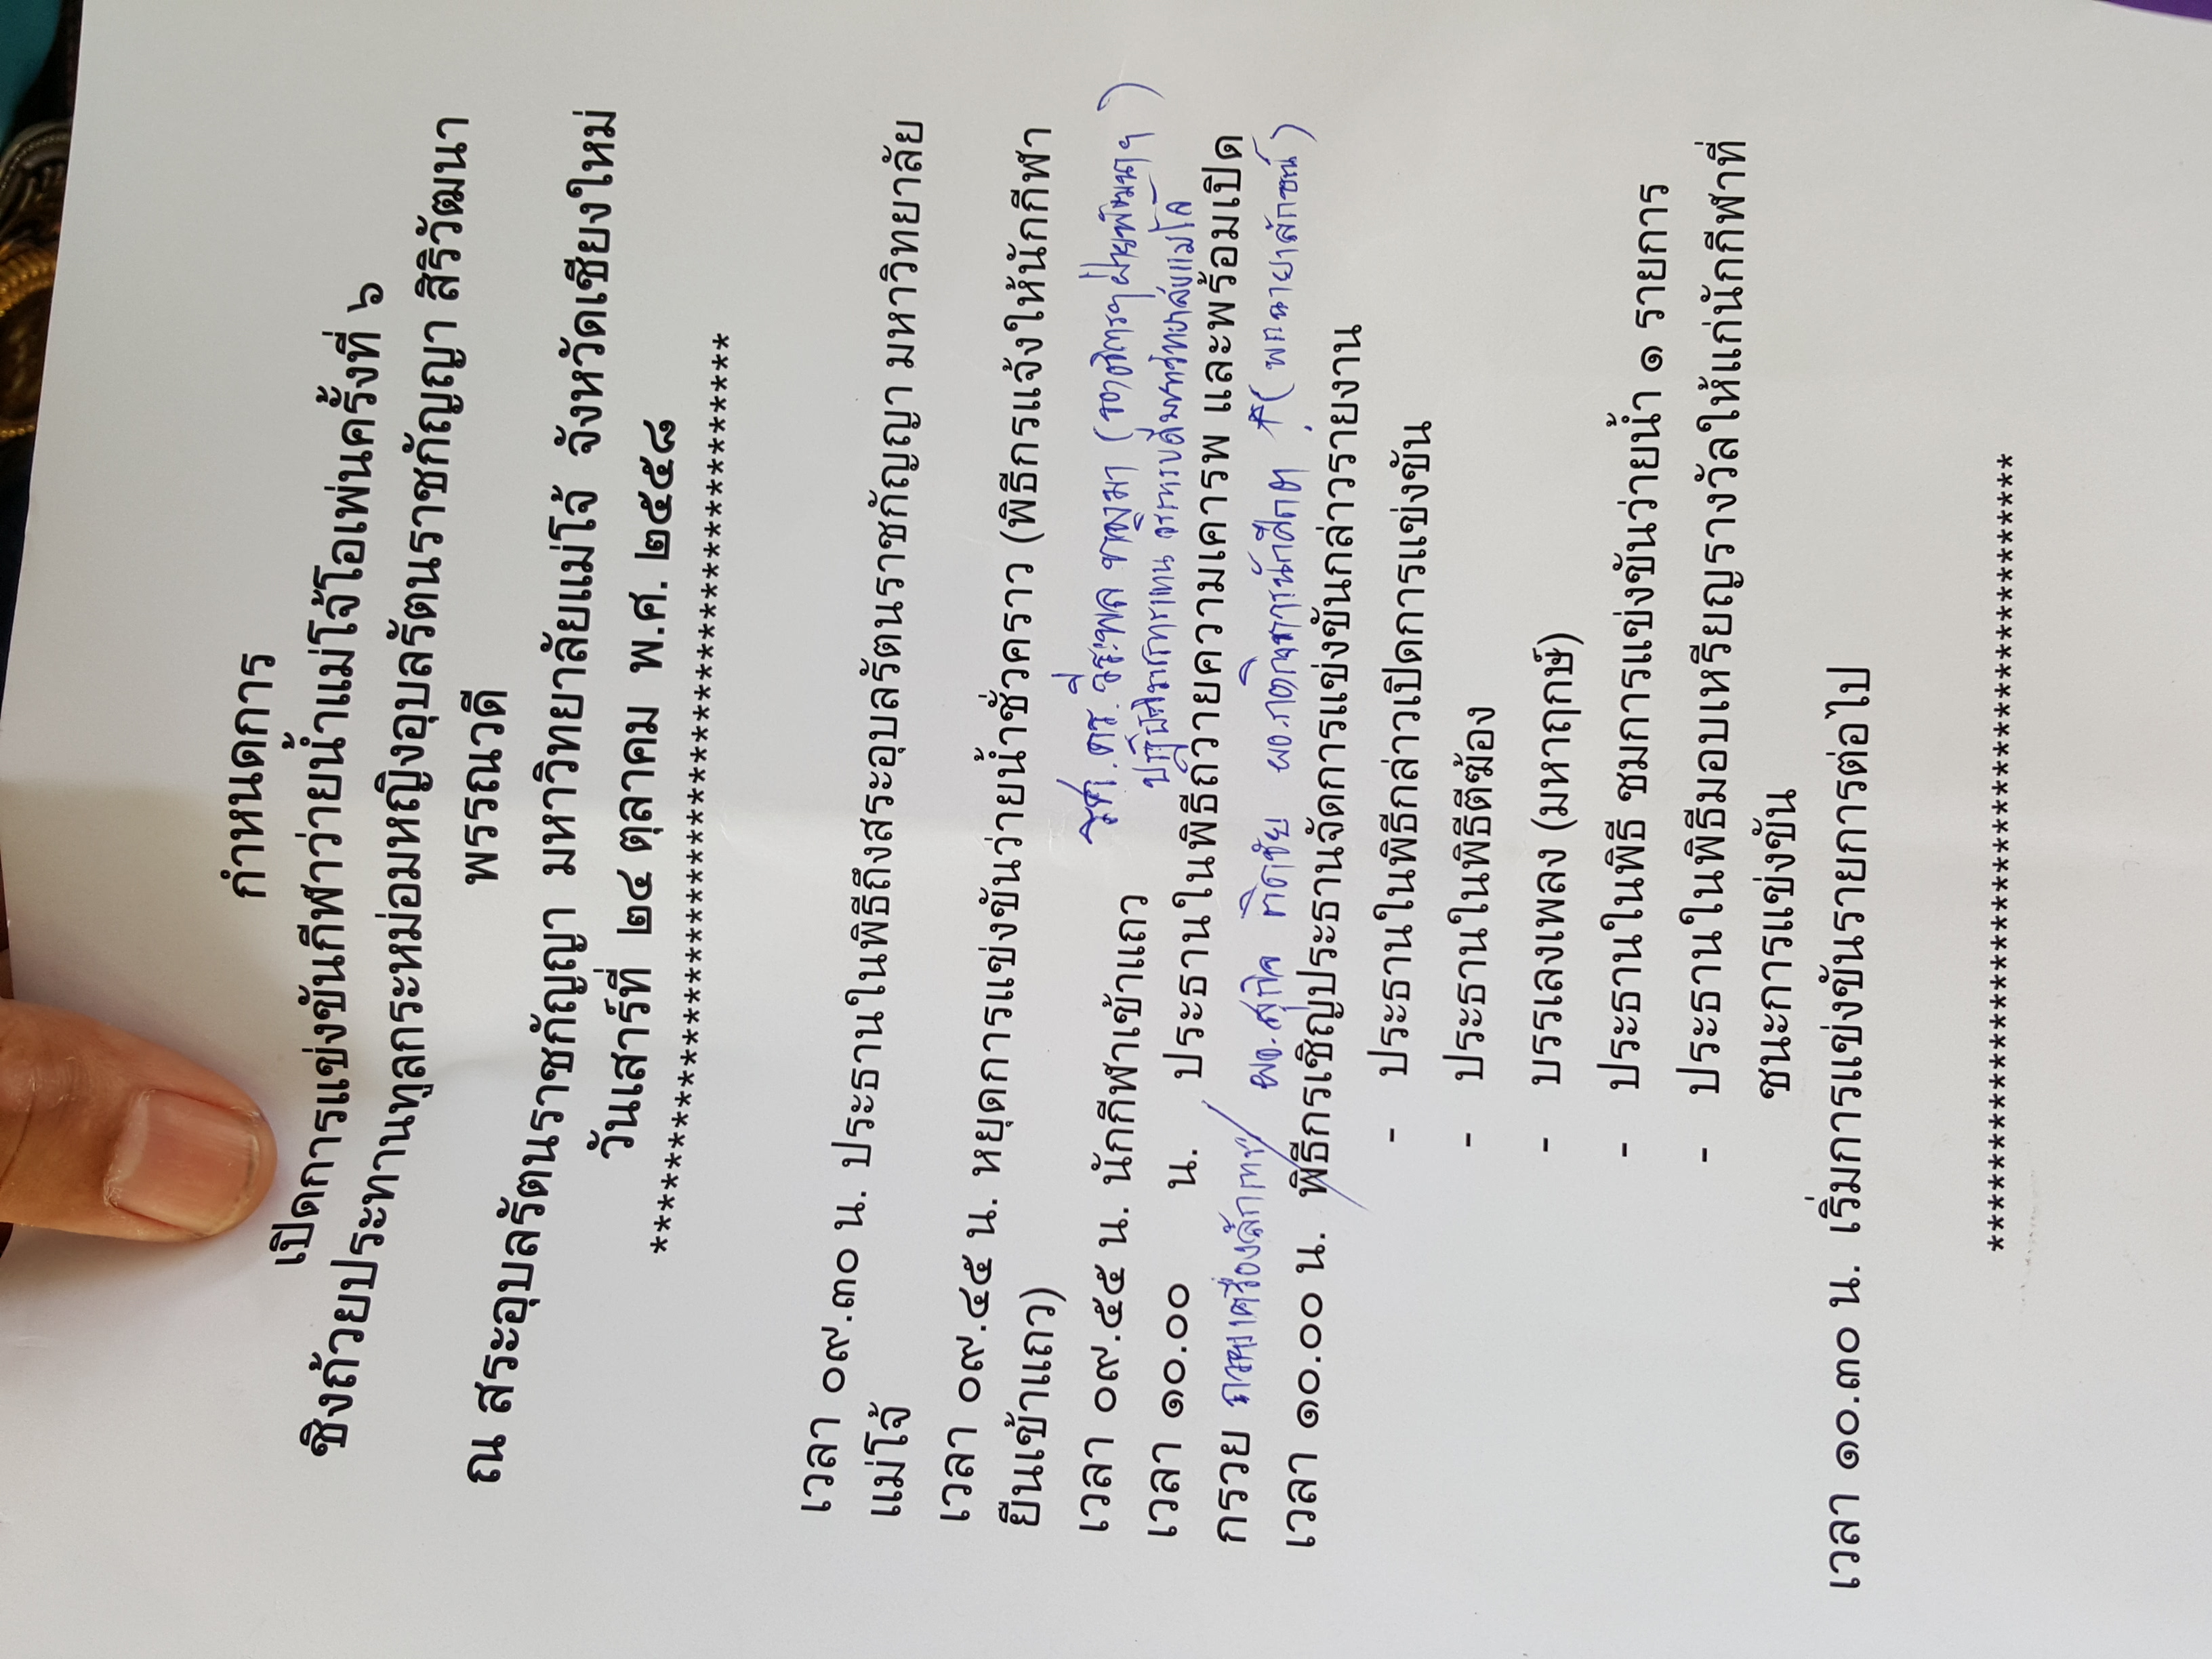 กำหนดการ
เปิดการแข่งขันกีฬาว่ายน้ำแม่โจ้โอเพ่นครั้งที่ ๖
ชิงถ้วยประทานทูลกระหม่อมหญิงอุบลรัตนราชกัญญา สิริวัฒนา
พรรณวดี
ณ สระอุบลรัตนราชกัญญา มหาวิทยาลัยแม่โจ้ จังหวัดเชียงใหม่
วันเสาร์ที่ ๒๔ ตุลาคม พ.ศ. ๒๕๕๘
เวลา ๐๙.๓๐ น. ประธานในพิธีถึงสระอุบลรัตนราชกัญญา มหาวิทยาลัย
แม่โจ้
เวลา ๐๙.๔๕ น. หยุดการแข่งขันว่ายน้ำชั่วคราว (พิธีกรแจ้งให้นักกีฬา
ยืนเข้าแถว)
รศ.ดร. (รองอธิการฯ ฝ่ายพัฒนาฯ)
เวลา ๐๙.๕๕ น. นักกีฬาเข้าแถว
ปฏิบัติราชการแทน อธิการบดีมหาวิทยาลัยแม่โจ้
เวลา ๑๐.๐๐ น. ประธานในพิธีถวายความเคารพ และพร้อมเปิด
กรวย ถวายเครื่องสักการะ ผอ.กองกิจการนักศึกษา
เวลา ๑๐.๐๐ น. พิธีกรเชิญประธานจัดการแข่งขันกล่าวรายงาน
- ประธานในพิธีกล่าวเปิดการแข่งขัน
- ประธานในพิธีตีฆ้อง
- บรรเลงเพลง (มหาฤกษ์)
- ประธานในพิธี ชมการแข่งขันว่ายน้ำ ๑ รายการ
- ประธานในพิธีมอบเหรียญรางวัลให้แก่นักกีฬาที่
ชนะการแข่งขัน
เวลา ๑๐.๓๐ น. เริ่มการแข่งขันรายการต่อไป